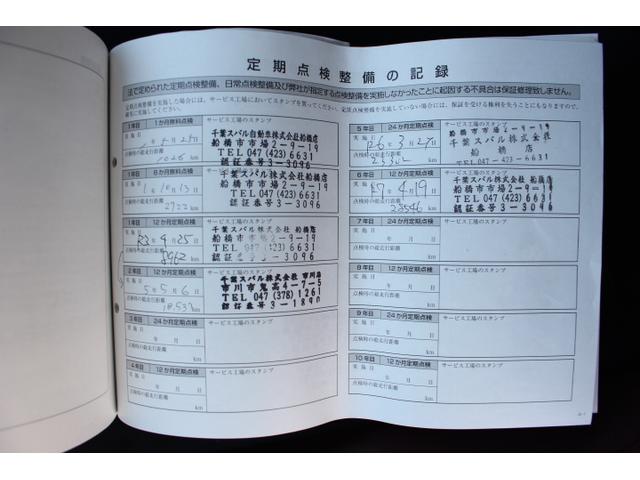 定期点検整備の記録
法で定められた定期点検整備、日常点検整備及び弊社が指定する点検整備を実施しなかったことに起因する不具合は保証修理致しません。
定期点検整備を実施した場合には、サービス工場においてスタンプを貰ってください。定期点検整備を実施していない場合には、保証を受ける権利を失うことにもなりますので、
確実に実施してください。
1年目 1か月無料点検 サービス工場のスタンプ
実施日
点検時の総走行距離
1026 km
千葉スバル自動車株式会社船橋店
船橋市市場2-9-19
TEL 047 (423) 6631
認証番号3-3096
1年目 6か月無料点検 サービス工場のスタンプ
実施日
1年10月13日
点検時の総走行距離
2722 km
千葉スバル株式会社船橋店
船橋市市場2-9-19
TEL 047 (423) 6631
認証番号3-3096
1年目 12か月定期点検 サービス工場のスタンプ
実施日
年4月25日
点検時の総走行距離
8962 km
千葉スバル株式会社 船橋店
船橋市市場2-9-19
TEL 047 (423) 6631
認証番号3-3096
2年目 12か月定期点検 サービス工場のスタンプ
実施日
5年5月6日
点検時の総走行距離
18,537 km
千葉スバル株式会社 市川店
市川市鬼高4-7-5
TEL 047 (378) 1261
認証番号3-1890
3年目 24か月定期点検 サービス工場のスタンプ
実施日
年 月 日
点検時の総走行距離
km
4年目 12か月定期点検 サービス工場のスタンプ
実施日
年 月 日
点検時の総走行距離
km
5年目 24か月定期点検 サービス工場のスタンプ
実施日
R6年3月27日
点検時の総走行距離
km
船橋市市場2-9-19
千葉スバル株式会社
船橋店
6年目 12か月定期点検 サービス工場のスタンプ
実施日
R7年4月19日
点検時の総走行距離
23546 km
千葉スバル株式会社 船橋店
船橋市市場2-9-19
TEL 047 (423) 6631
認証番号3-3096
7年目 24か月定期点検 サービス工場のスタンプ
実施日
年 月 日
点検時の総走行距離
km
8年目 12か月定期点検 サービス工場のスタンプ
実施日
年 月 日
点検時の総走行距離
km
9年目 24か月定期点検 サービス工場のスタンプ
実施日
年 月 日
点検時の総走行距離
km
10年目 12か月定期点検 サービス工場のスタンプ
実施日
年 月 日
点検時の総走行距離
km